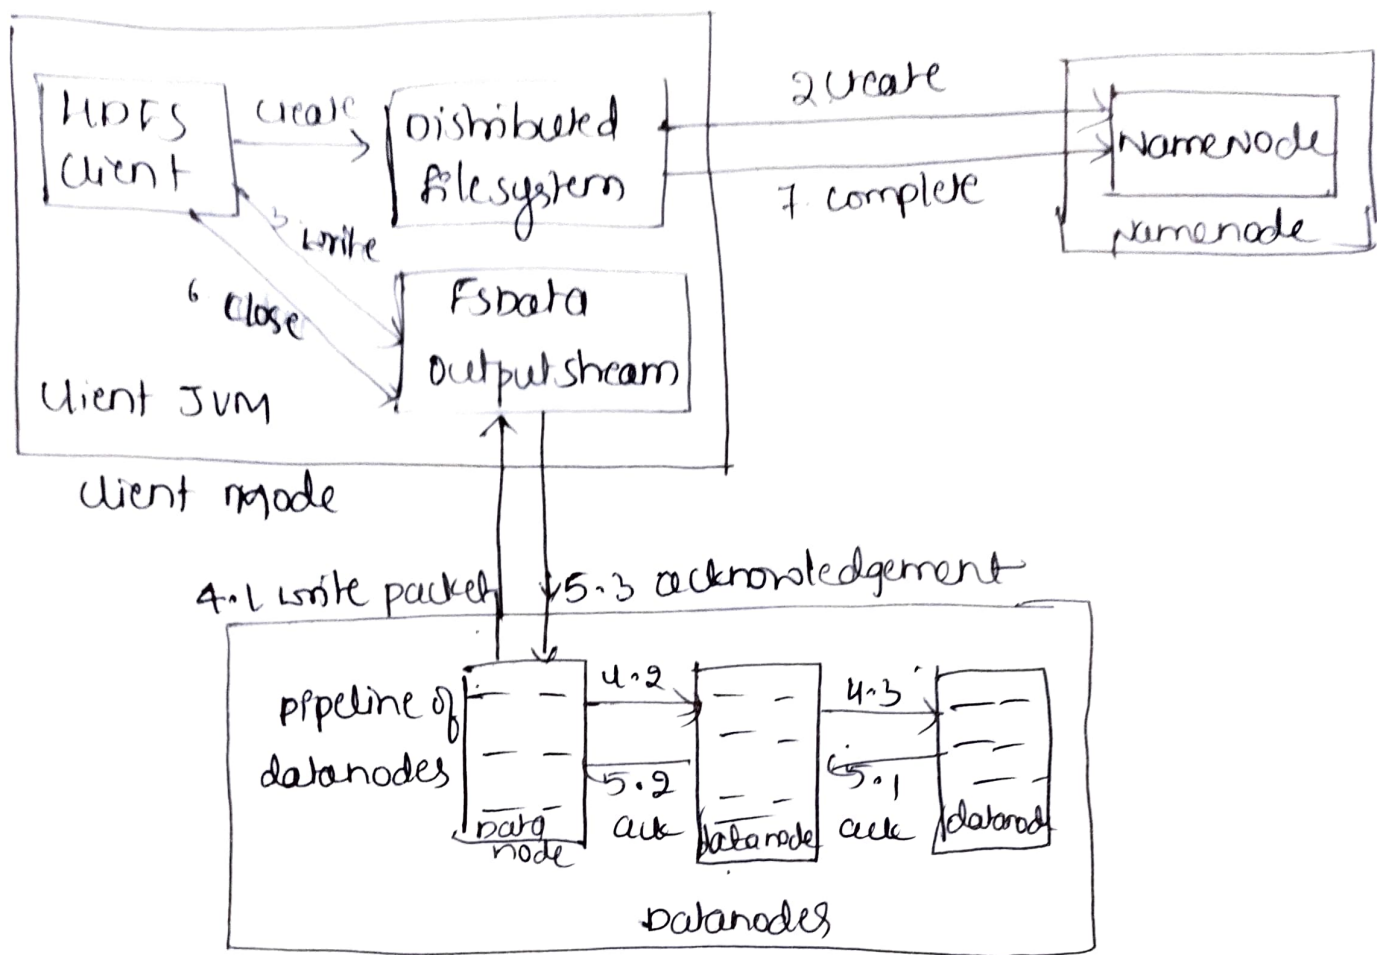 HDFS
Client
create
Distributed
filesystem
2 create
7. complete
NameNode
namenode
3 write
6 close
FSData
outputstream
client JVM
client node
4.1 write packet
5.3 acknowledgement
pipeline of
datanodes
4.2
4.3
5.2
ack
5.1
ack
Data
node
datanode
datanod
Datanodes